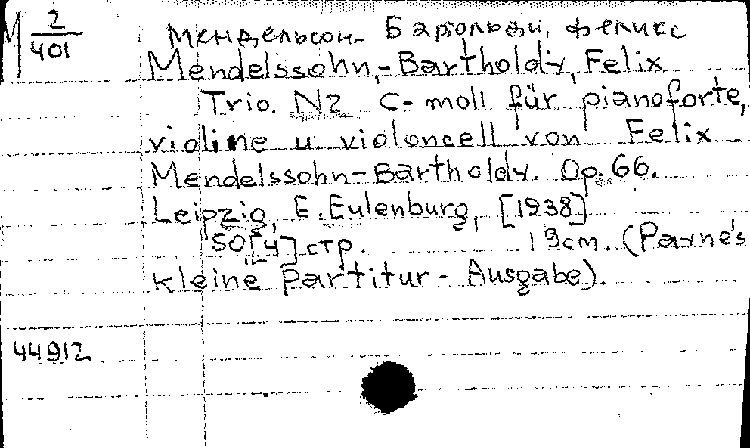 М 2/401
Мендельсон- Бартольди, Феликс
Mendelssohn,-Bartholdy, Felix
Trio. N2 C-moll für pianoforte,
violine u violoncell von Felix
Mendelssohn-Bartholdy. Op.66.
Leipzig, E.Eulenburg, [1938]
50[4]стр. 19cm. (Payne's
kleine Partitur-Ausgabe).
44912